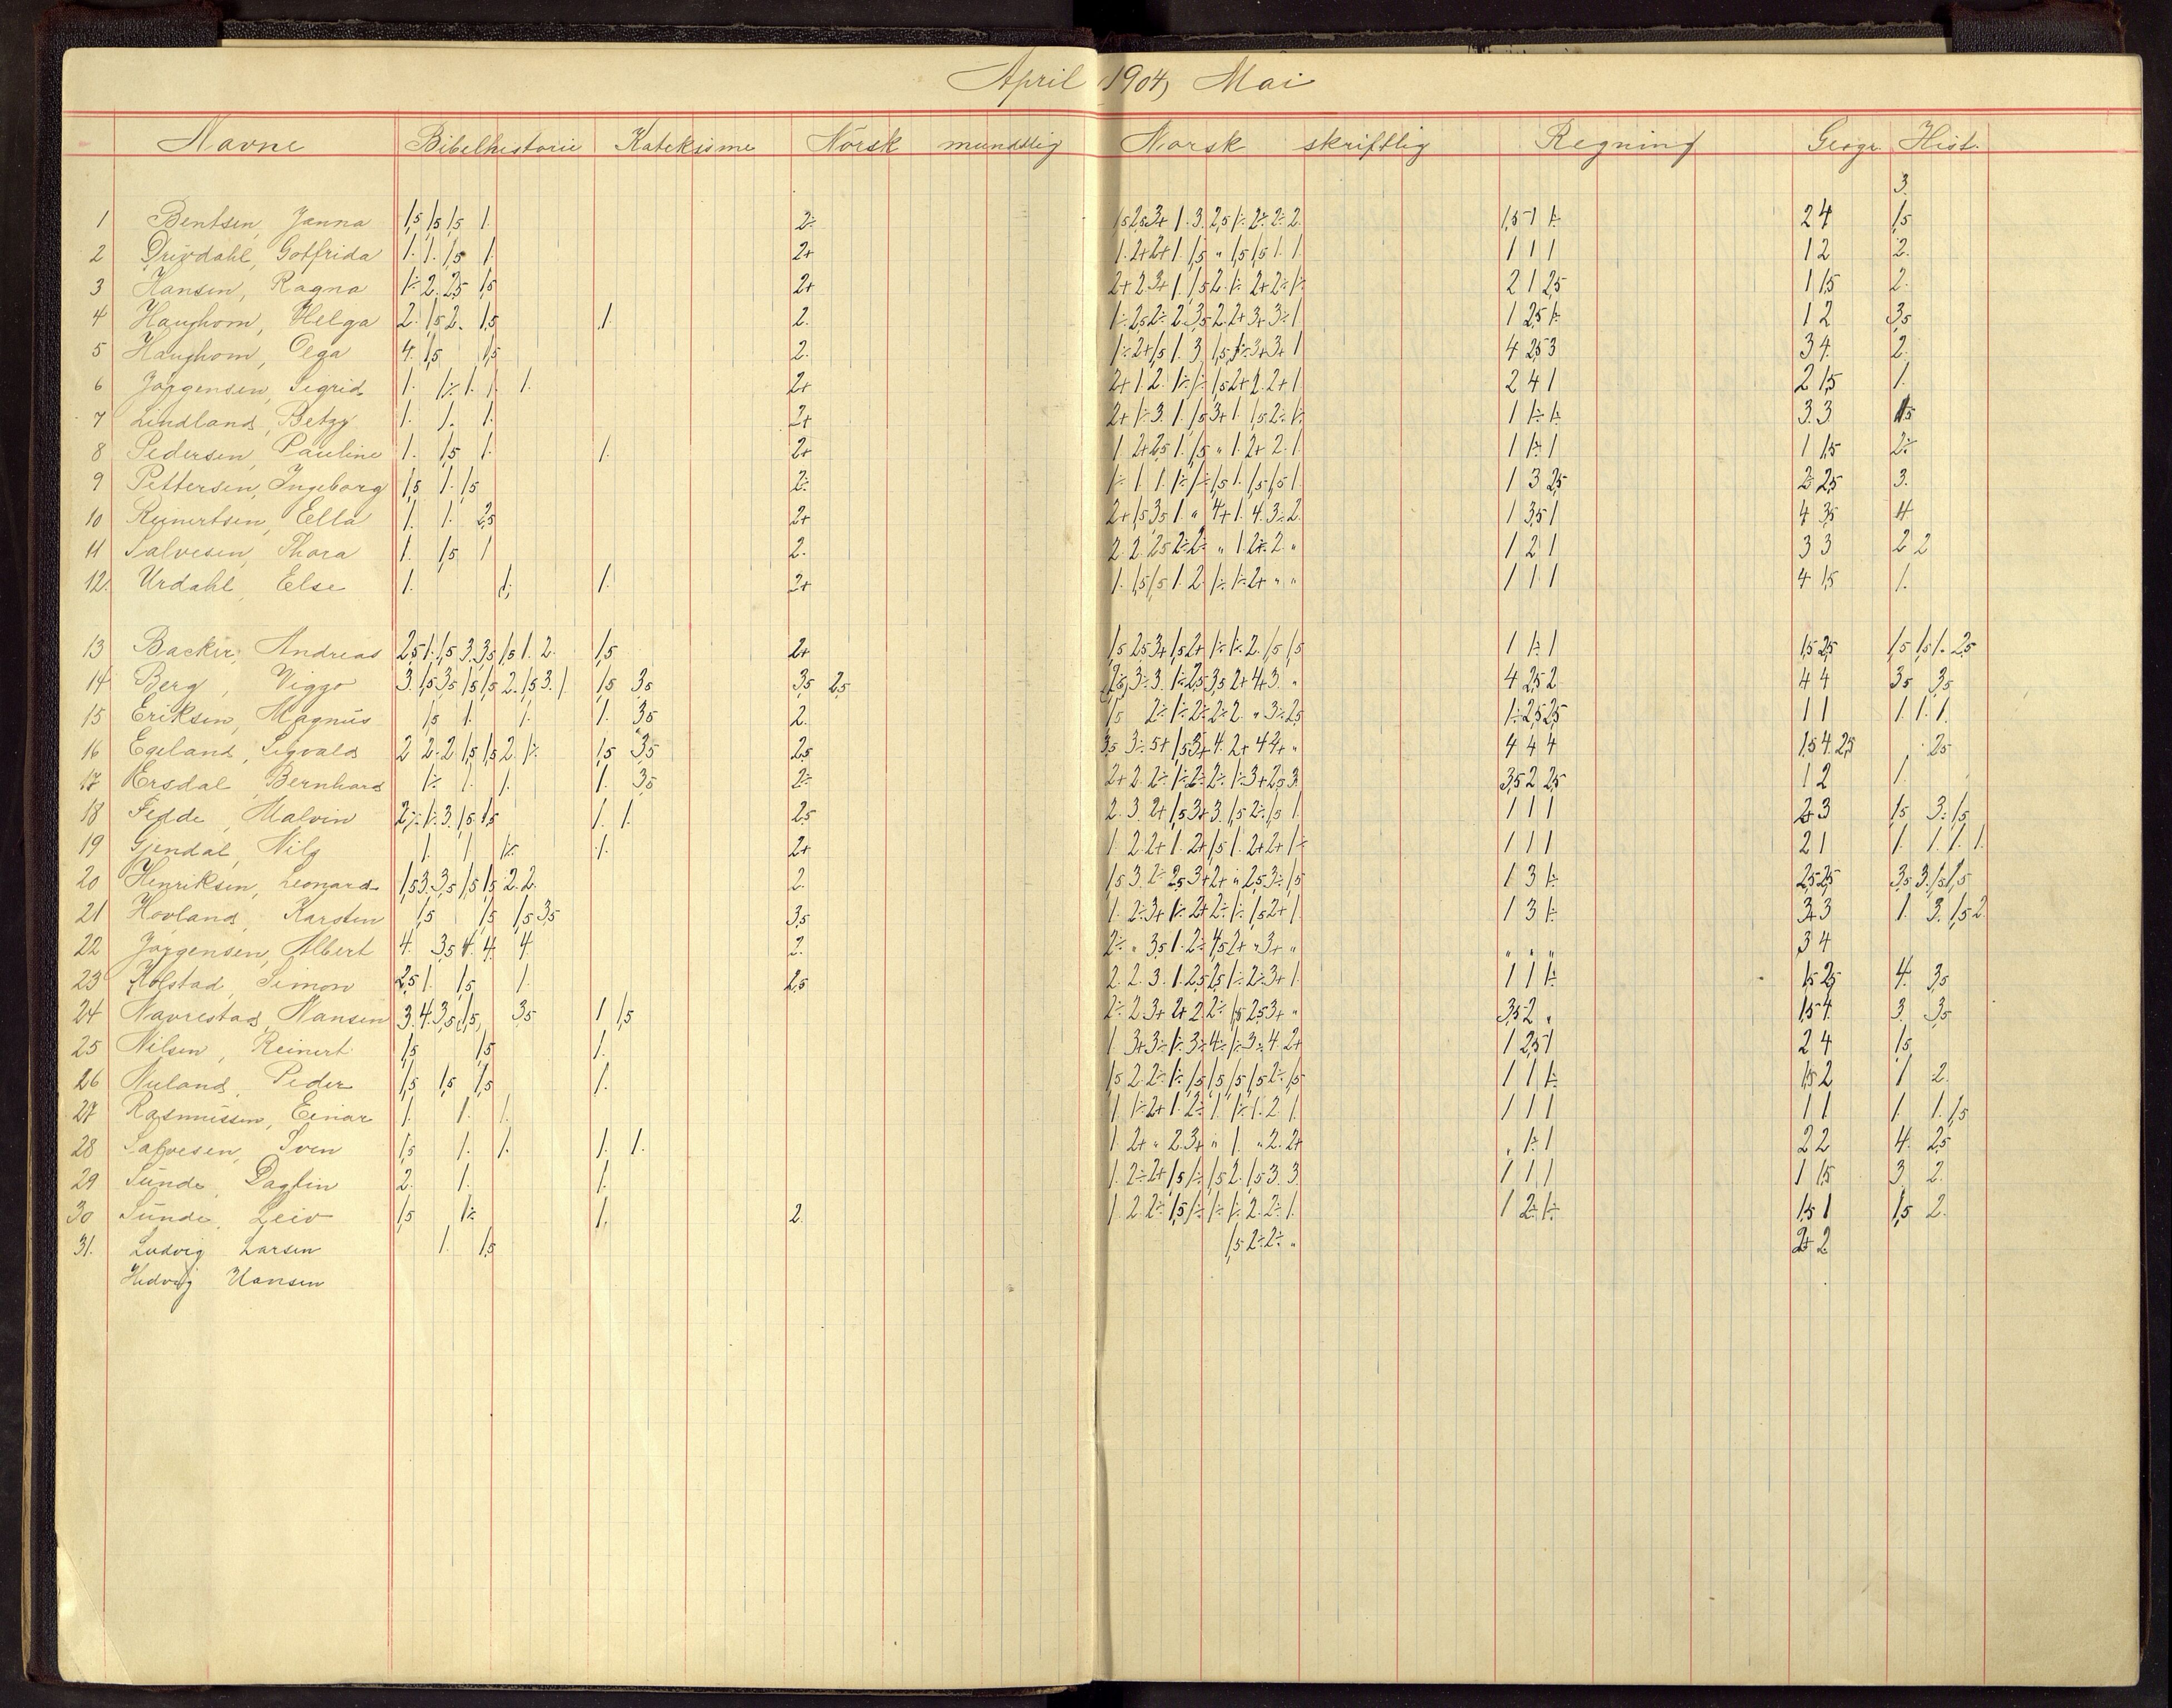 April 1904, Mai
Navne Bibelhistorie Katekisme Norsk mundtlig Norsk skriftlig Regning Geogr. Hist.
3
1 Bentsen, Janna 1,5 1,5 1,5 1. 2÷ 1,5 2,5 3+ 1. 3. 2,5 1÷ 2÷ 2÷ 2. 1,5 1 1÷ 2 4 1,5
2 Drivdahl, Gotfrida 1. 1. 1,5 1. 2+ 1. 2+ 2+ 1. 1,5 " 1,5 1,5 1. 1. 1 1 1 1 2 2.
3 Hansen, Ragna 1÷ 2. 2,5 1,5 2+ 2+ 2. 3+ 1. 1,5 2. 1÷ 2+ 2÷ 1÷ 2 1 2,5 1 1,5 2.
4 Haughom, Helga 2. 1,5 2. 1,5 1. 2. 1÷ 2,5 2÷ 2. 3,5 2. 2+ 3+ 3÷ 1 1 2,5 1÷ 1 2 3,5
5 Haughom, Olga 4. 1,5 1,5 2. 1÷ 2+ 1,5 1. 3 1,5 1÷ 3+ 3+ 1 4 2,5 3 3 4. 2.
6 Jørgensen, Sigrid 1. 1÷ 1. 1. 1. 2+ 2+ 1. 2. 1÷ 1÷ 1,5 2+ 2. 2+ 1. 2 4 1 2 1,5 1.
7 Lindland, Betzy 1. 1. 1. 2+ 2+ 1÷ 3. 1. 1,5 3+ 1. 1,5 2÷ 1÷ 1 1÷ 1÷ 3. 3. 1,5
8 Pedersen, Pauline 1. 1,5 1. 1. 2+ 1. 2+ 2,5 1. 1,5 " 1. 2+ 2. 1. 1 1÷ 1 1 1,5 2÷
9 Pettersen, Ingeborg 1,5 1. 1,5 2÷ 1÷ 1. 1. 1÷ 1÷ 1,5 1. 1,5 1,5 1. 1 3 2,5 2÷ 2,5 3.
10 Reinertsen, Ella 1. 1. 2,5 2+ 2+ 1,5 3,5 1. " 4+ 1. 4. 3÷ 2. 1 3,5 1 4 3,5 4
11 Salvesen, Thora 1. 1,5 1 2. 2. 2. 2,5 2÷ 2÷ " 1. 2+ 2. " 1 2 1 3 3 2 2
12. Urdahl, Else 1. 1. 1. 2+ 1. 1,5 1,5 1. 2. 1÷ 1÷ 2+ " " 1 1 1 4 1,5 1.
13 Backer, Andreas 2,5 1. 1,5 3. 3,5 1,5 1. 2. 1,5 2+ 1,5 2,5 3+ 1,5 2+ 1÷ 1÷ 2. 1,5 1,5 1 1÷ 1 1,5 2,5 1,5 1,5 1. 2,5
14 Berg, Viggo 3. 1,5 3,5 1,5 1,5 2. 1,5 3. 1 1,5 3,5 3,5 2,5 2,5 3÷ 3. 1÷ 2,5 3,5 2+ 4+ 3. " 4 2,5 2 4 4 3,5 3,5
15 Eriksen, Magnus 1,5 1. 1. 1. 3,5 2. 1,5 2÷ 1÷ 2÷ 2÷ 2. " 3÷ 2,5 1÷ 2,5 2,5 1 1 1. 1. 1.
16 Egeland, Sigvald 2 2. 2 1,5 1,5 2 1÷ 1,5 3,5 2,5 3,5 3÷ 5+ 1,5 3+ 4. 2+ 4 4+ " 4 4 4 1,5 4 2,5 2,5
17 Ersdal, Bernhard 1÷ 1. 1. 1. 3,5 2÷ 2+ 2. 2÷ 1÷ 2÷ 2÷ 1÷ 3+ 2,5 3. 3,5 2 2,5 1 2 1.
18 Fedde, Malvin 2÷ 1÷ 3. 1,5 1,5 1. 1. 2,5 2. 3. 2+ 1,5 3+ 3. 1,5 2÷ 1,5 1. 1 1 1 2+ 3 1,5 3÷ 1,5
19 Gjendal, Nils 1. 1 1÷ 1. 2+ 1. 2. 2+ 1. 2+ 1,5 1. 2+ 2+ 1÷ 1 1 1 2 1 1. 1. 1. 1.
20 Henriksen, Leonard 1,5 3. 3,5 1,5 1,5 2. 2. 2. 1,5 3. 2÷ 2,5 3+ 2+ " 2,5 3÷ 1,5 1 3 1÷ 2,5 2,5 3,5 3. 1,5 1,5
21 Hovland, Karsten 1,5 1,5 1,5 3,5 3,5 1. 2÷ 3+ 1÷ 2+ 2÷ 1÷ 1,5 2+ 1. 1 3 1÷ 3+ 3 1. 3. 1,5 2.
22 Jørgensen, Albert 4. 3,5 4. 4. 4 2. 2÷ " 3,5 1. 2÷ 4,5 2+ " 3+ " " " " 3 4
23 Kolstad, Simon 2,5 1. 1,5 1. 2,5 2. 2. 3. 1. 2,5 2,5 1÷ 2÷ 3+ 1. 1 1 1÷ 1,5 2,5 4. 3,5
24 Navrestad, Hansen 3. 4. 3,5 1,5 3,5 1 1,5 2÷ 2. 3+ 2+ 2. 2÷ 1,5 2,5 3+ " 3,5 2 " 1,5 4 3. 3,5
25 Nilsen, Reinert 1,5 1,5 1. 1. 3+ 3÷ 1÷ 3÷ 4÷ 1÷ 3÷ 4. 2+ 1 2,5 1 2 4 1,5
26 Nuland, Peder 1,5 1,5 1,5 1. 1,5 2. 2÷ 1÷ 1,5 1,5 1,5 1,5 2÷ 1,5 1 1 1÷ 1,5 2 1 2.
27 Rasmussen, Einar 1. 1. 1. 1. 1÷ 2+ 1. 2÷ 1. 1÷ 1. 2. 1. 1 1 1 1 1 1. 1. 1,5
28 Salvesen, Sven 1,5 1. 1. 1. 1. 1. 2+ " 2. 3+ " 1. " 2. 2+ " 1÷ 1 2 2 4. 2,5
29 Sunde, Dagfin 2. 1. 1. 1. 2÷ 2+ 1,5 1÷ 1,5 2. 1,5 3. 3. 1 1 1 1 1,5 3 2.
30 Sunde, Leiv 1,5 1÷ 1. 2. 1 2. 2÷ 1,5 1÷ 1÷ 1÷ 2. 2÷ 1. 1 2÷ 1÷ 1,5 1 1,5 2.
31. Ludvig Larsen 1. 1,5 1,5 2÷ 2÷ " 2+ 2
Hedvig Hansen